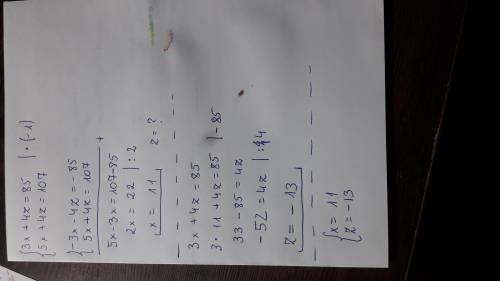 {3x+4z=85 | •(-1)
{5x+4z=107
{-3x-4z=-85
{5x+4z=107 +
5x-3x=107-85
2x=22 | :2
x=11 z=?
3x+4z=85
3•11+4z=85 |-85
33-85=4z
-52=4z | :4
z=-13
{x=11
{z=-13